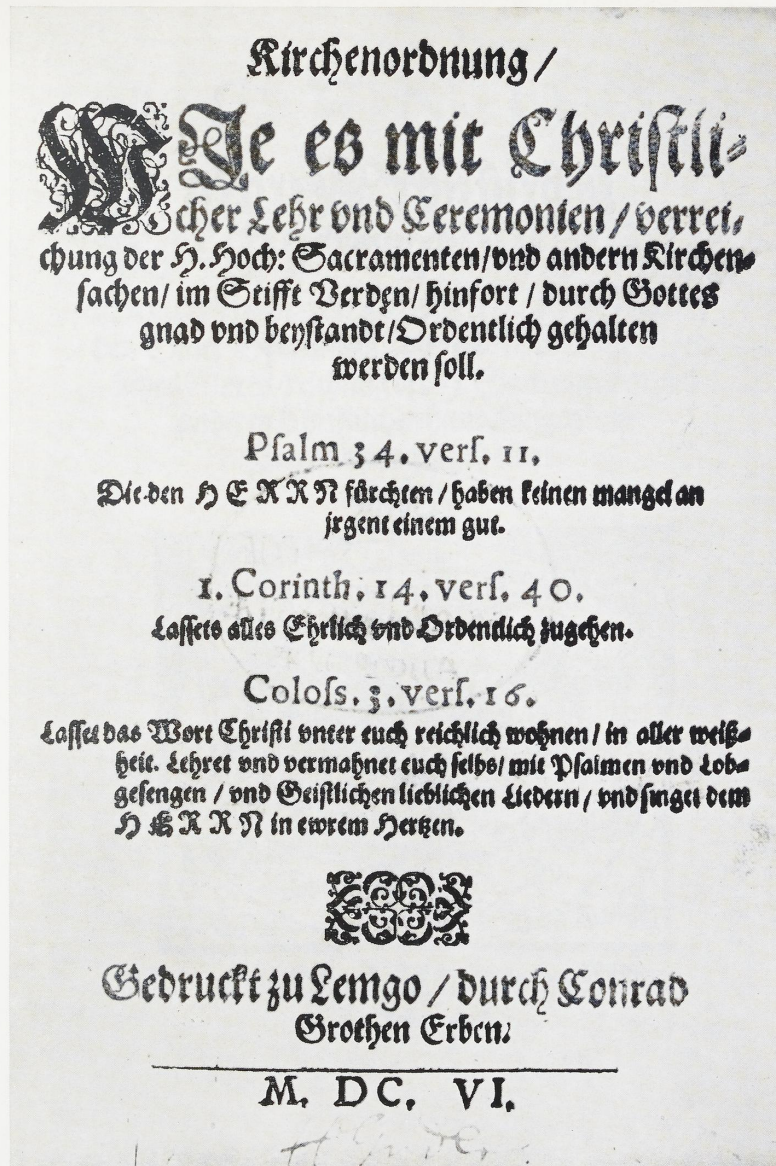 Kirchenordnung /
WJe es mit Christli-
cher Lehr vnd Ceremonien / verrei-
chung der H. Hoch: Sacramenten/ vnd andern Kirchen-
sachen/ im Stifft Verden/ hinfort / durch Gottes
gnad vnd beystandt/ Ordentlich gehalten
werden soll.
Psalm 34. vers. 11.
Die den HERRN fürchten / haben keinen mangel an
jrgent einem gut.
1. Corinth. 14. vers. 40.
Lassets alles Ehrlich vnd Ordentlich zugehen.
Coloss. 3. vers. 16.
Lasset das Wort Christi vnter euch reichlich wohnen / in aller weiß-
heit. Lehret vnd vermahnet euch selbs/ mit Psalmen vnd Lob-
gesengen / vnd Geistlichen lieblichen Liedern / vnd singet dem
HERRN in ewrem Hertzen.
Gedruckt zu Lemgo / durch Conrad
Grothen Erben.
M. DC. VI.